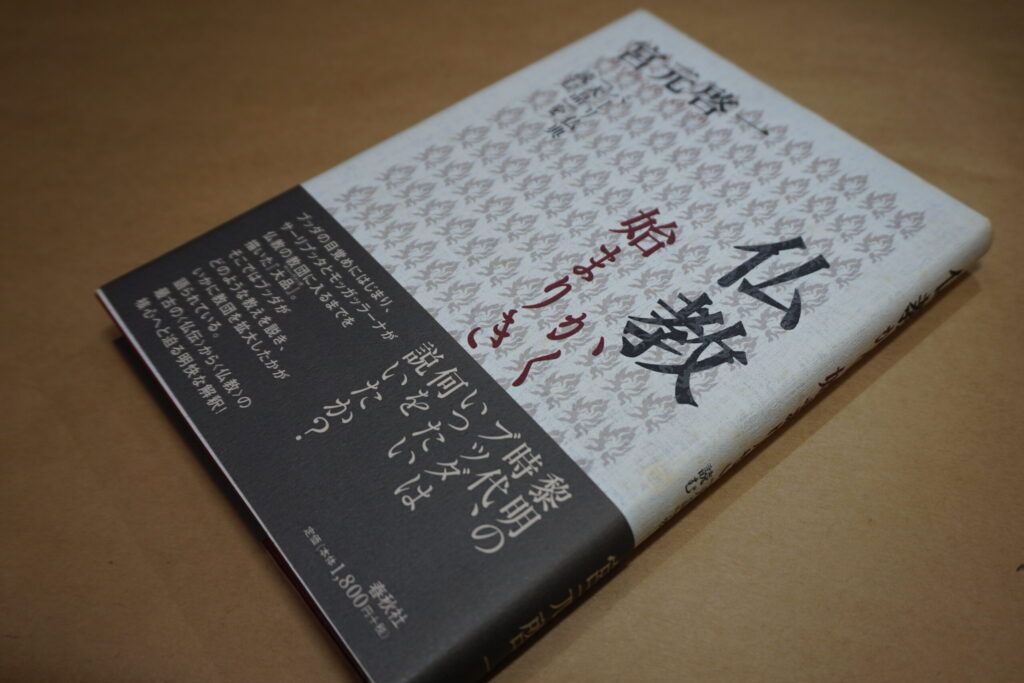 宮元啓一
パーリ仏典
『大品』を読む
仏教
かく
始まりき
黎明の
時代、
ブッダは
いったい
何を
説いたか?
ブッダの目覚めにはじまり、
サーリプッタとモッガッラーナが
仏教の教団に入るまでを
描いた『大品』。
そこではブッダが
どのような教えを説き、
いかに教団を拡大したかが
語られている。
最古の〈仏伝〉から〈仏教〉の
核心へと迫る明快な解釈!
春秋社
定価(本体1,800円+税)
読む
宮元啓一